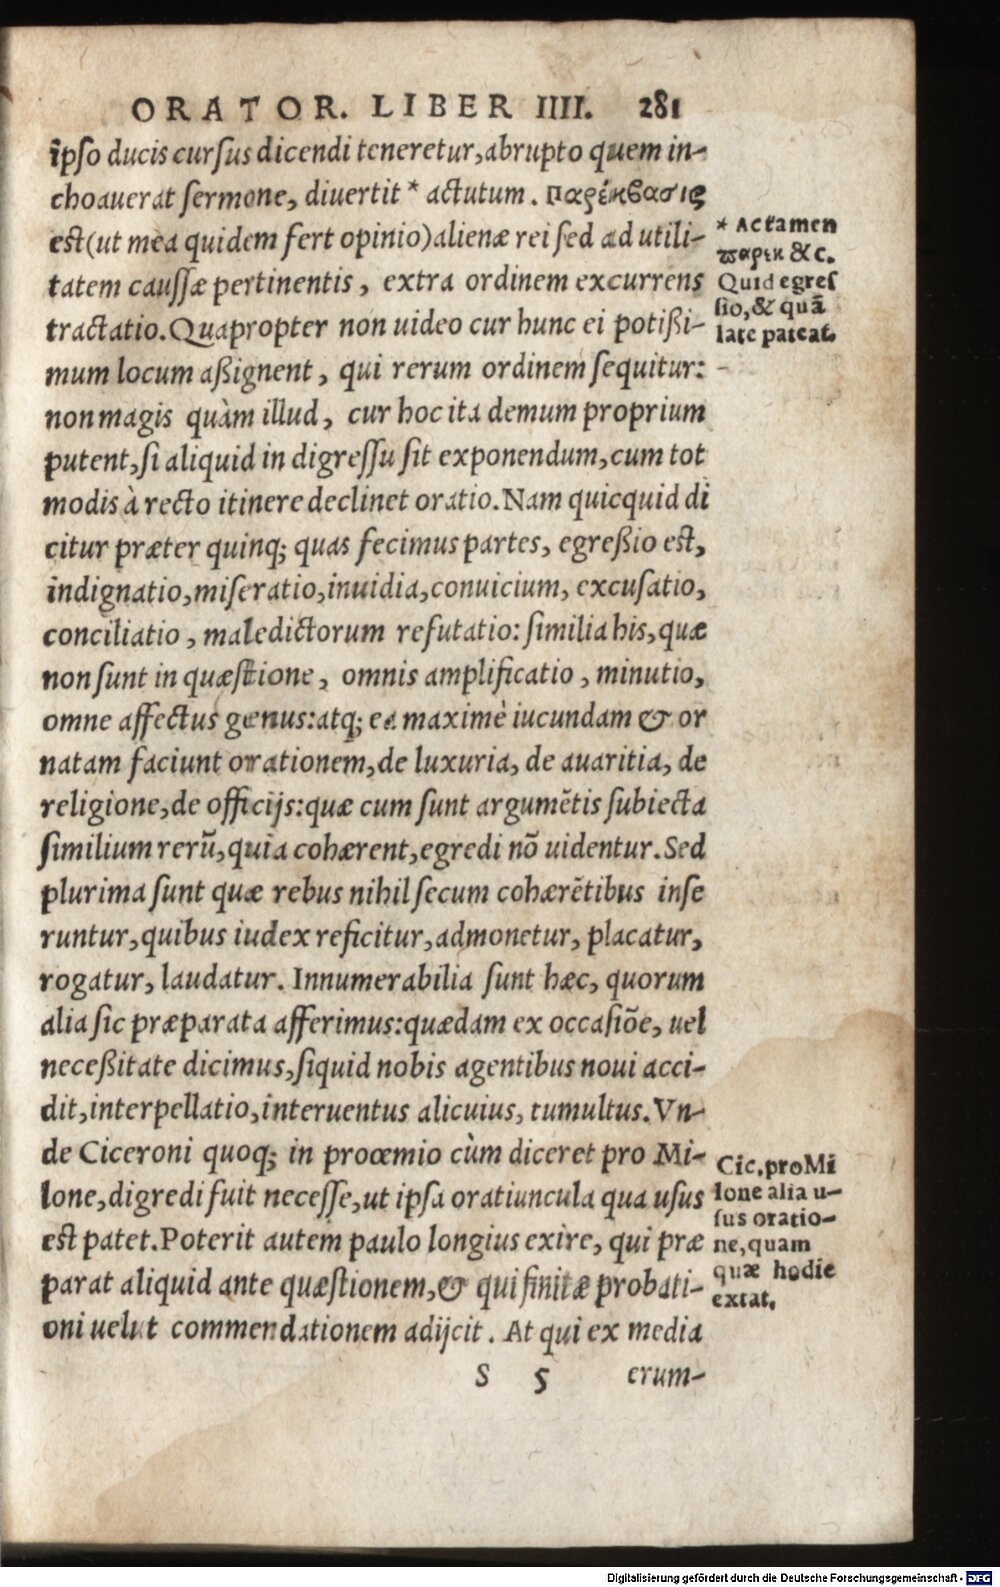 ORATOR. LIBER IIII. 281
ipso ducis cursus dicendi teneretur, abrupto quem in-
choauerat sermone, diuertit * actutum. παρέκβασις
est (ut mea quidem fert opinio) alienæ rei sed ad utili-
tatem caussæ pertinentis, extra ordinem excurrens
tractatio. Quapropter non uideo cur hunc ei potißi-
mum locum aßignent, qui rerum ordinem sequitur:
non magis quàm illud, cur hoc ita demum proprium
putent, si aliquid in digressu sit exponendum, cum tot
modis à recto itinere declinet oratio. Nam quicquid di
citur præter quinq; quas fecimus partes, egreßio est,
indignatio, miseratio, inuidia, conuicium, excusatio,
conciliatio, maledictorum refutatio: similia his, quæ
non sunt in quæstione, omnis amplificatio, minutio,
omne affectus genus: atq; ea maximè iucundam & or
natam faciunt orationem, de luxuria, de auaritia, de
religione, de officijs: quæ cum sunt argumētis subiecta
similium rerū, quia cohærent, egredi nō uidentur. Sed
plurima sunt quæ rebus nihil secum cohærētibus inse
runtur, quibus iudex reficitur, admonetur, placatur,
rogatur, laudatur. Innumerabilia sunt hæc, quorum
alia sic præparata afferimus: quædam ex occasiōe, uel
neceßitate dicimus, siquid nobis agentibus noui acci-
dit, interpellatio, interuentus alicuius, tumultus. Vn-
de Ciceroni quoq; in proœmio cùm diceret pro Mi-
lone, digredi fuit necesse, ut ipsa oratiuncula qua usus
est patet. Poterit autem paulo longius exire, qui præ
parat aliquid ante quæstionem, & qui finitæ probati-
oni uelut commendationem adijcit. At qui ex media
S 5 erum-
* Ac tamen
παρεκ &c.
Quid egres
sio, & quā
late pateat.
Cic. pro Mi
lone alia u-
sus oratio-
ne, quam
quæ hodie
extat.
Digitalisierung gefördert durch die Deutsche Forschungsgemeinschaft - DFG